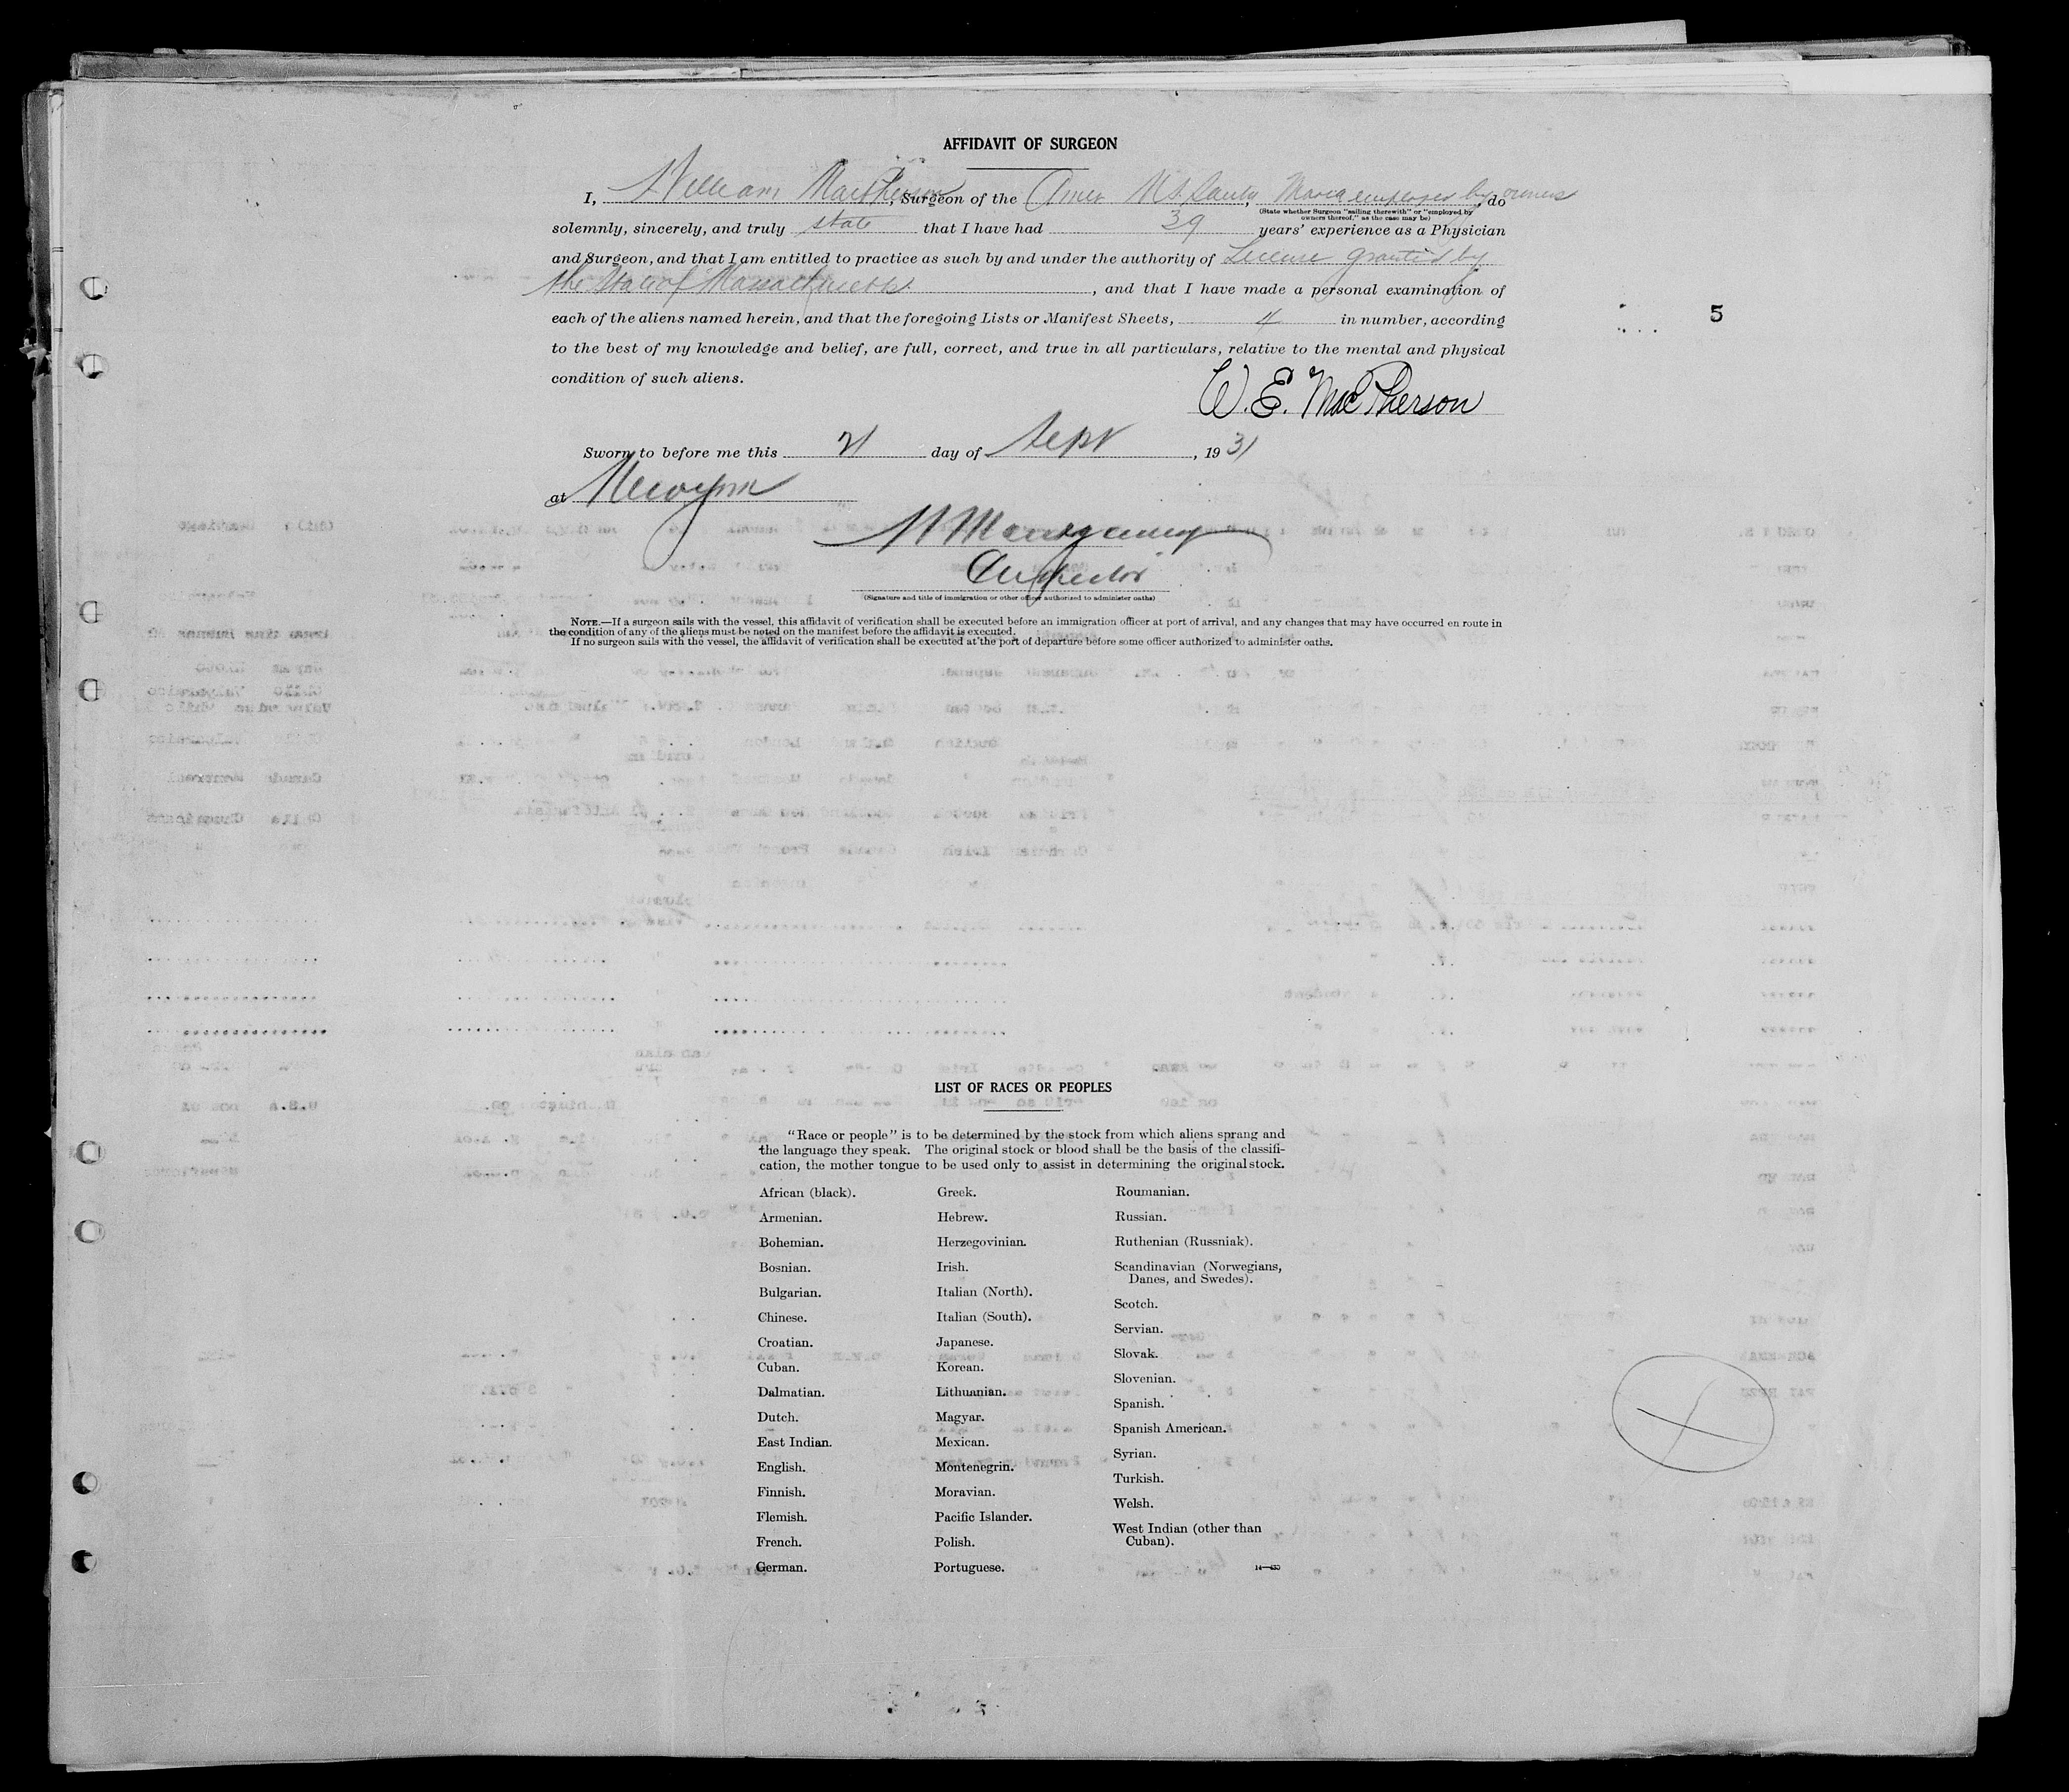 AFFIDAVIT OF SURGEON
I, William MacPherson, Surgeon of the Amer M.S. Santa Maria employed by owners, do
(State whether Surgeon "sailing therewith" or "employed by
owners thereof," as the case may be)
solemnly, sincerely, and truly state that I have had 39 years' experience as a Physician
and Surgeon, and that I am entitled to practice as such by and under the authority of License granted by
the State of Massachusetts, and that I have made a personal examination of
each of the aliens named herein, and that the foregoing Lists or Manifest Sheets, 4 in number, according
5
to the best of my knowledge and belief, are full, correct, and true in all particulars, relative to the mental and physical
condition of such aliens.
W. E. MacPherson
Sworn to before me this 21 day of Sept, 1931
at New York
Montgomery
Inspector
(Signature and title of immigration or other officer authorized to administer oaths)
NOTE.—If a surgeon sails with the vessel, this affidavit of verification shall be executed before an immigration officer at port of arrival, and any changes that may have occurred en route in
the condition of any of the aliens must be noted on the manifest before the affidavit is executed.
If no surgeon sails with the vessel, the affidavit of verification shall be executed at the port of departure before some officer authorized to administer oaths.
LIST OF RACES OR PEOPLES
"Race or people" is to be determined by the stock from which aliens sprang and
the language they speak. The original stock or blood shall be the basis of the classifi-
cation, the mother tongue to be used only to assist in determining the original stock.
African (black).
Armenian.
Bohemian.
Bosnian.
Bulgarian.
Chinese.
Croatian.
Cuban.
Dalmatian.
Dutch.
East Indian.
English.
Finnish.
Flemish.
French.
German.
Greek.
Hebrew.
Herzegovinian.
Irish.
Italian (North).
Italian (South).
Japanese.
Korean.
Lithuanian.
Magyar.
Mexican.
Montenegrin.
Moravian.
Pacific Islander.
Polish.
Portuguese.
Roumanian.
Russian.
Ruthenian (Russniak).
Scandinavian (Norwegians,
Danes, and Swedes).
Scotch.
Servian.
Slovak.
Slovenian.
Spanish.
Spanish American.
Syrian.
Turkish.
Welsh.
West Indian (other than
Cuban).